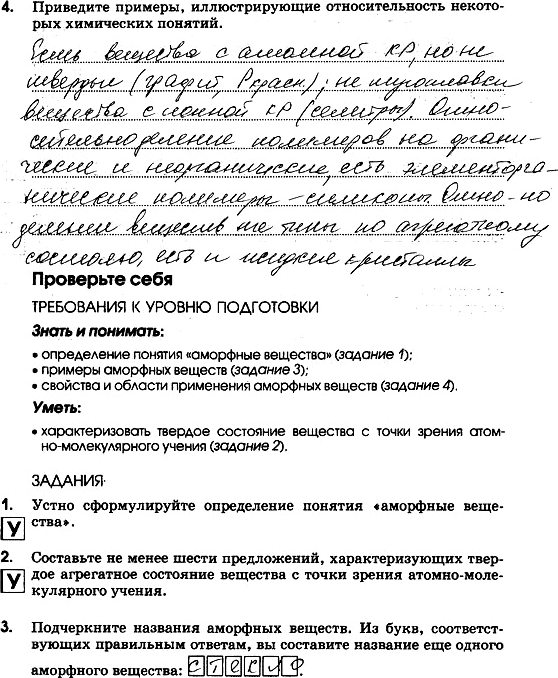 4. Приведите примеры, иллюстрирующие относительность некото-
рых химических понятий.
Есть вещества с атомной КР, но не
твердые (графит, Pкрасн.); не тугоплавки
вещества с ионной КР (селитры). Отно-
сительно деление полимеров на органи-
ческие и неорганические, есть элементорга-
нические полимеры – силиконы. Отно-но
деление веществ на типы по агрегатному
состоянию, есть и жидкие кристаллы
Проверьте себя
ТРЕБОВАНИЯ К УРОВНЮ ПОДГОТОВКИ
Знать и понимать:
• определение понятия «аморфные вещества» (задание 1);
• примеры аморфных веществ (задание 3);
• свойства и области применения аморфных веществ (задание 4).
Уметь:
• характеризовать твердое состояние вещества с точки зрения атом-
но-молекулярного учения (задание 2).
ЗАДАНИЯ
1. Устно сформулируйте определение понятия «аморфные веще-
У ства».
2. Составьте не менее шести предложений, характеризующих твер-
У дое агрегатное состояние вещества с точки зрения атомно-моле-
кулярного учения.
3. Подчеркните названия аморфных веществ. Из букв, соответст-
вующих правильным ответам, вы составите название еще одного
аморфного вещества: СТЕКЛО.